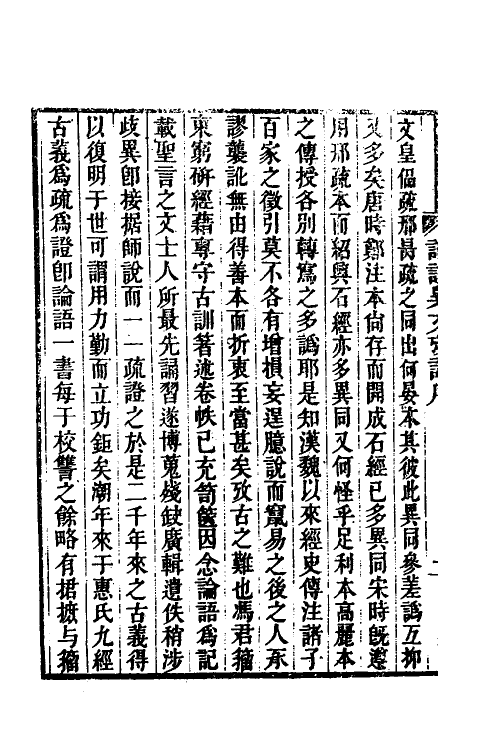 論語異文攷證序
文皇侃疏邢昺疏之同出何晏本其彼此異同參差譌互抑
又多矣唐時鄭注本尙存而開成石經已多異同宋時旣遵
用邢疏本而紹興石經亦多異同又何怪乎足利本高麗本
之傳授各別轉寫之多譌耶是知漢魏以來經史傳注諸子
百家之徵引莫不各有增損妄逞臆說而竄易之後之人承
謬襲訛無由得善本而折衷至當甚矣攷古之難也馮君䅵
東窮硏經籍尃守古訓著述卷帙已充笥篋因念論語爲記
載聖言之文士人所最先誦習遂博蒐殘缺廣輯遺佚稍涉
歧異卽接据師說而一一疏證之於是二千年來之古義得
以復明于世可謂用力勤而立功鉅矣潮年來于惠氏九經
古義爲疏爲證卽論語一書每于校讐之餘略有捃摭与䅵